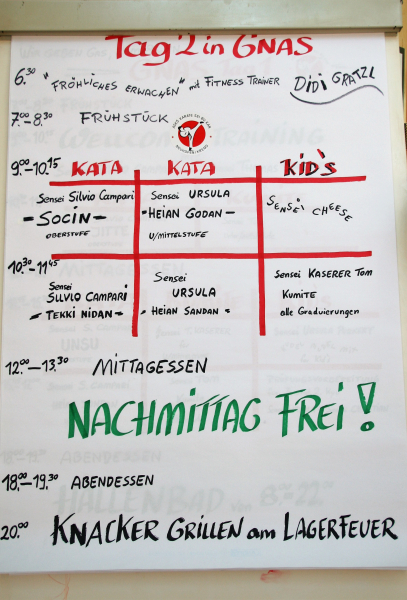 Tag 2 in GNAS
6.30 "FRÖHLICHES ERWACHEN" mit FITNESS TRAINER DIDI GRATZL
7.00-8.30 FRÜHSTÜCK
9.00-10.15 KATA KATA KID's
Sensei Silvio Campari
- SOCIN -
OBERSTUFE
Sensei URSULA
- HEIAN GODAN -
U/MITTELSTUFE
SENSEI CHEESE
10.30-11.45
Sensei
SILVIO CAMPARI
- TEKKI NIDAN -
Sensei
URSULA
- HEIAN SANDAN -
Sensei KASERER Tom
KUMITE
alle Graduierungen
12.00-13.30 MITTAGESSEN
NACHMITTAG FREI!
18.00-19.30 ABENDESSEN
20.00 KNACKER GRILLEN am LAGERFEUER